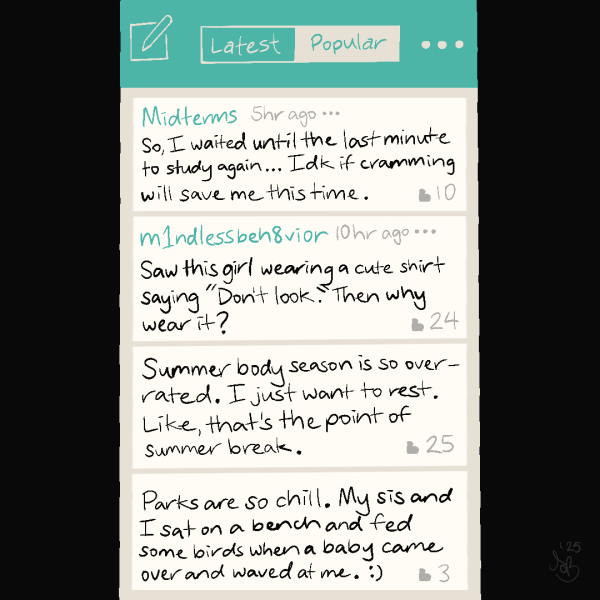 Latest Popular
Midterms 5hr ago •••
So, I waited until the last minute
to study again... Idk if cramming
will save me this time. 10
m1ndlessbeh8vior 10hr ago •••
Saw this girl wearing a cute shirt
saying "Don't look." Then why
wear it? 24
Summer body season is so over-
rated. I just want to rest.
Like, that's the point of
summer break. 25
Parks are so chill. My sis and
I sat on a bench and fed
some birds when a baby came
over and waved at me. :) 3
'25